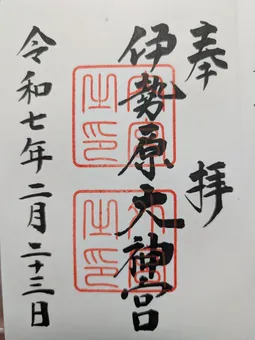 奉拝
伊勢原大神宮
之印
之印
令和七年二月二十三日